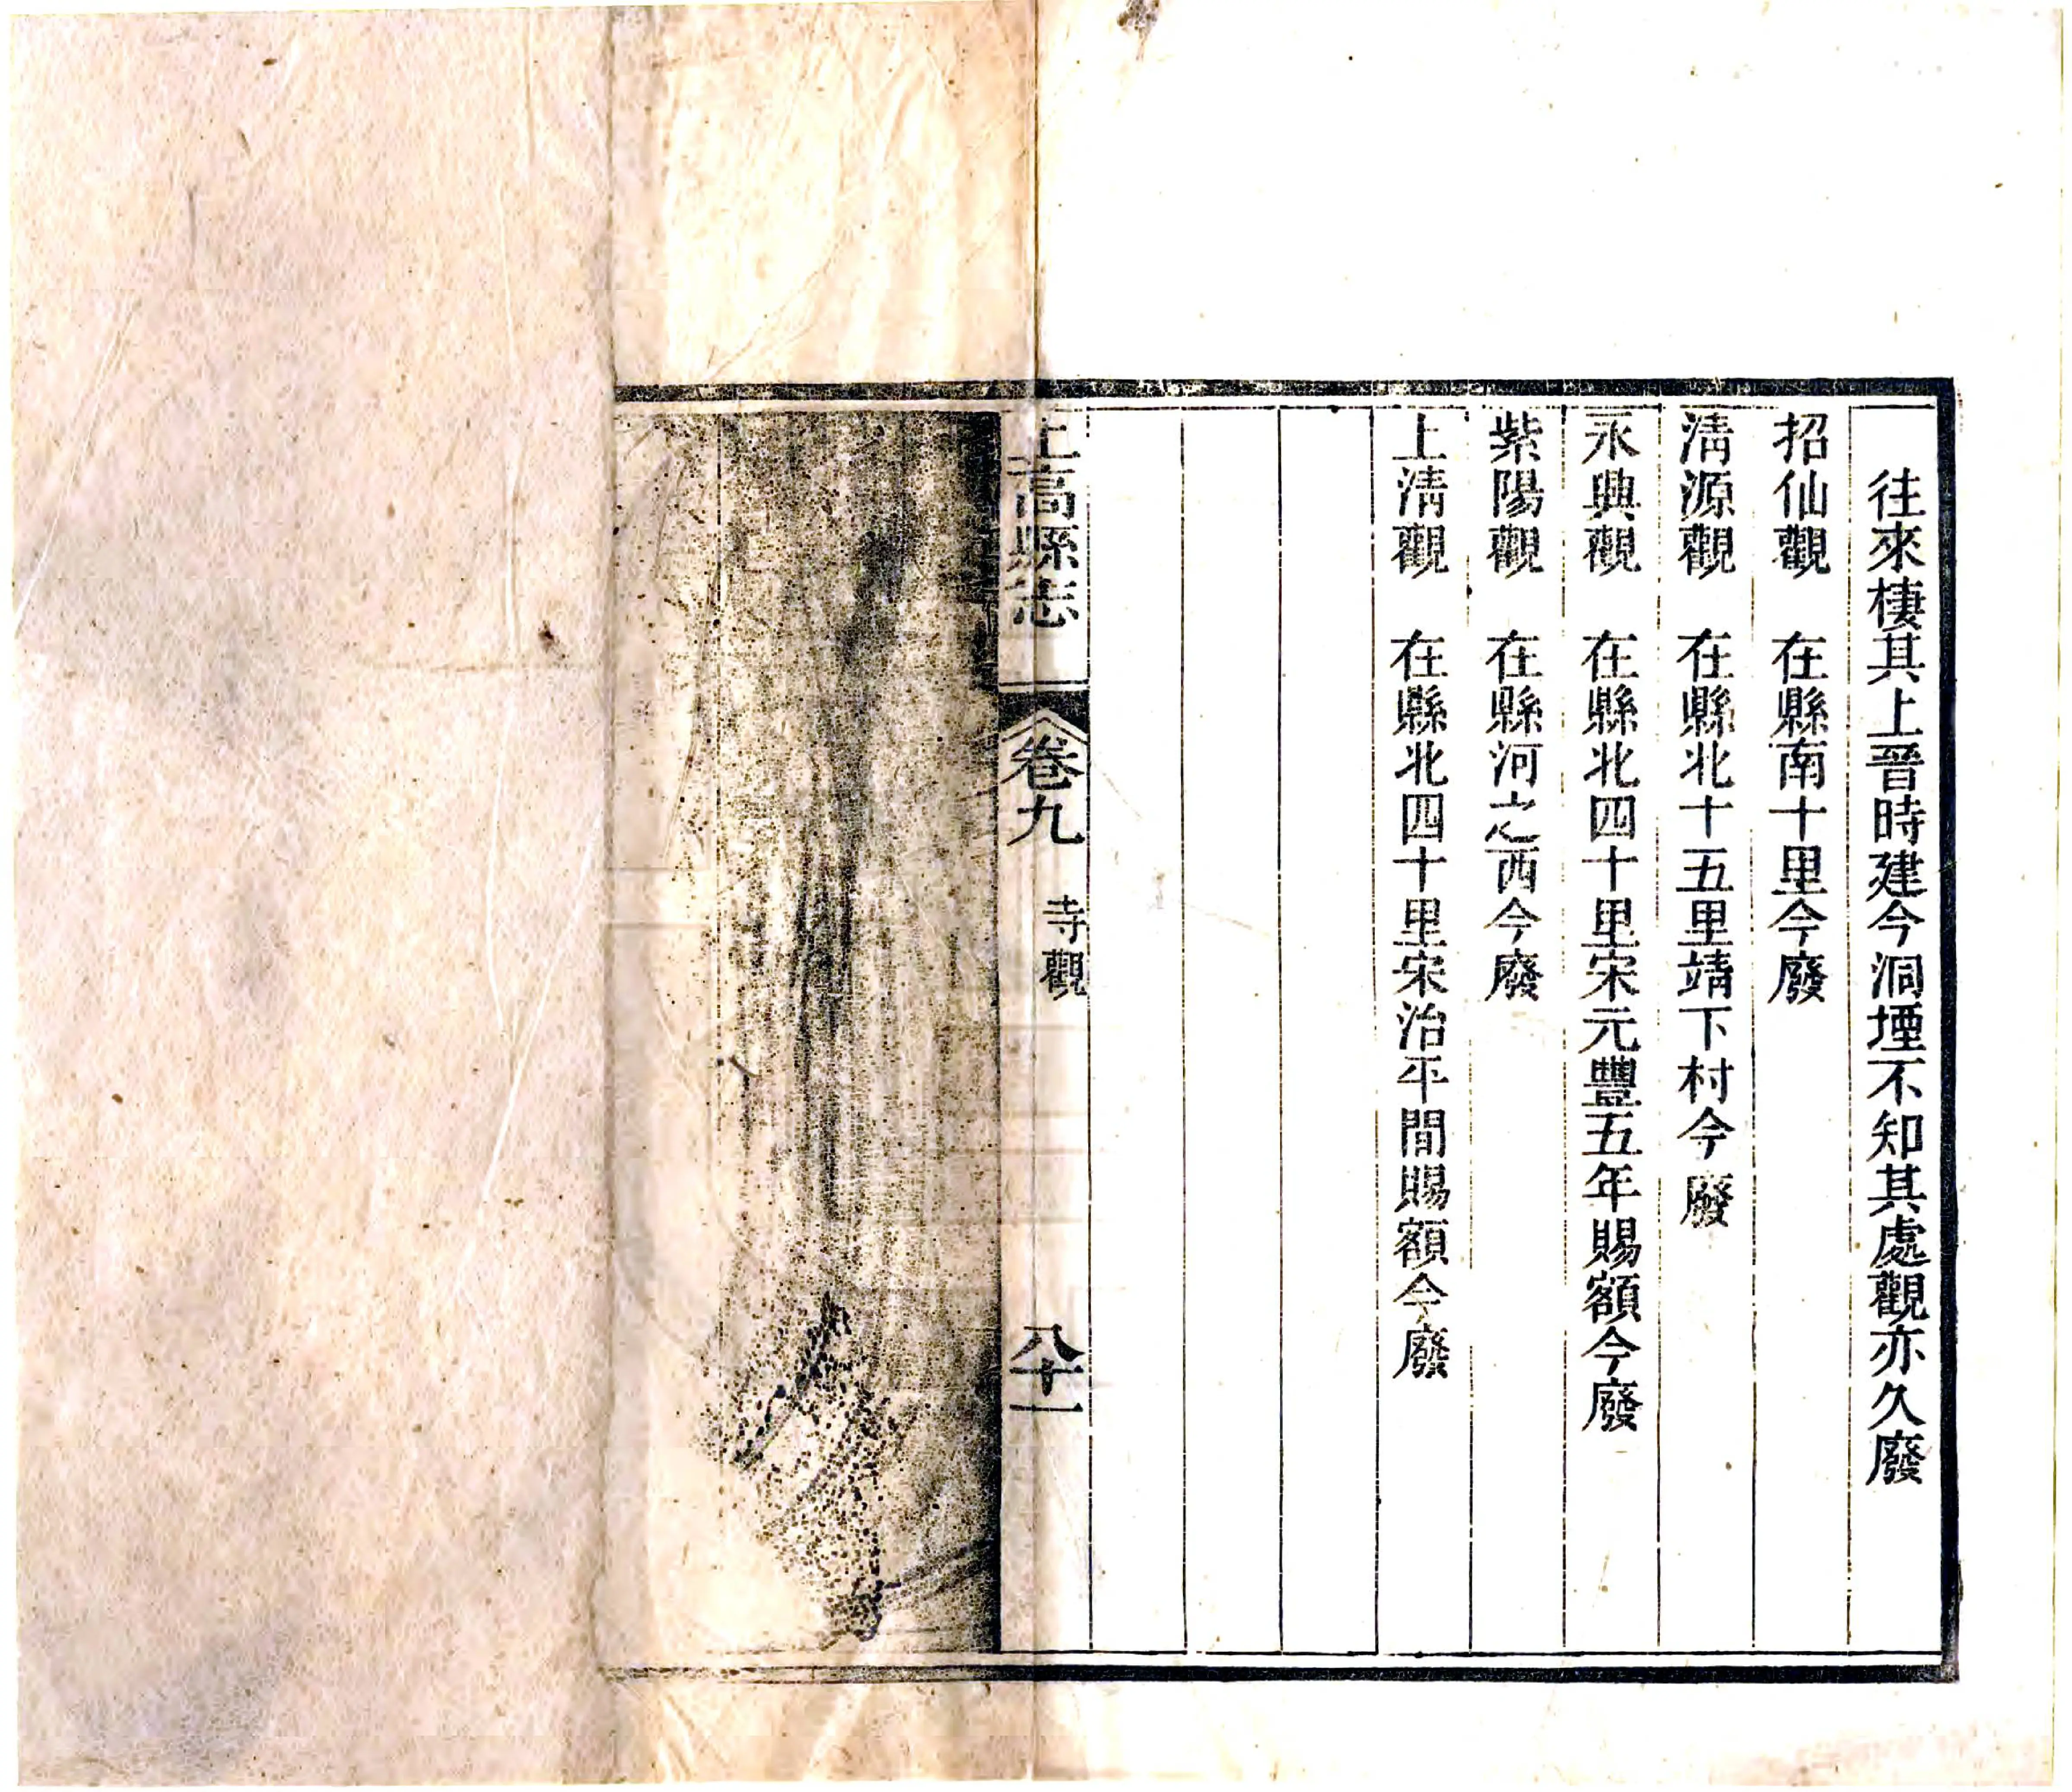 往來棲其上晉時建今洞堙不知其處觀亦久廢
招仙觀　在縣南十里今廢
清源觀　在縣北十五里靖下村今廢
永興觀　在縣北四十里宋元豐五年賜額今廢
紫陽觀　在縣河之西今廢
上清觀　在縣北四十里宋治平間賜額今廢
上高縣志　卷九　寺觀　八十一